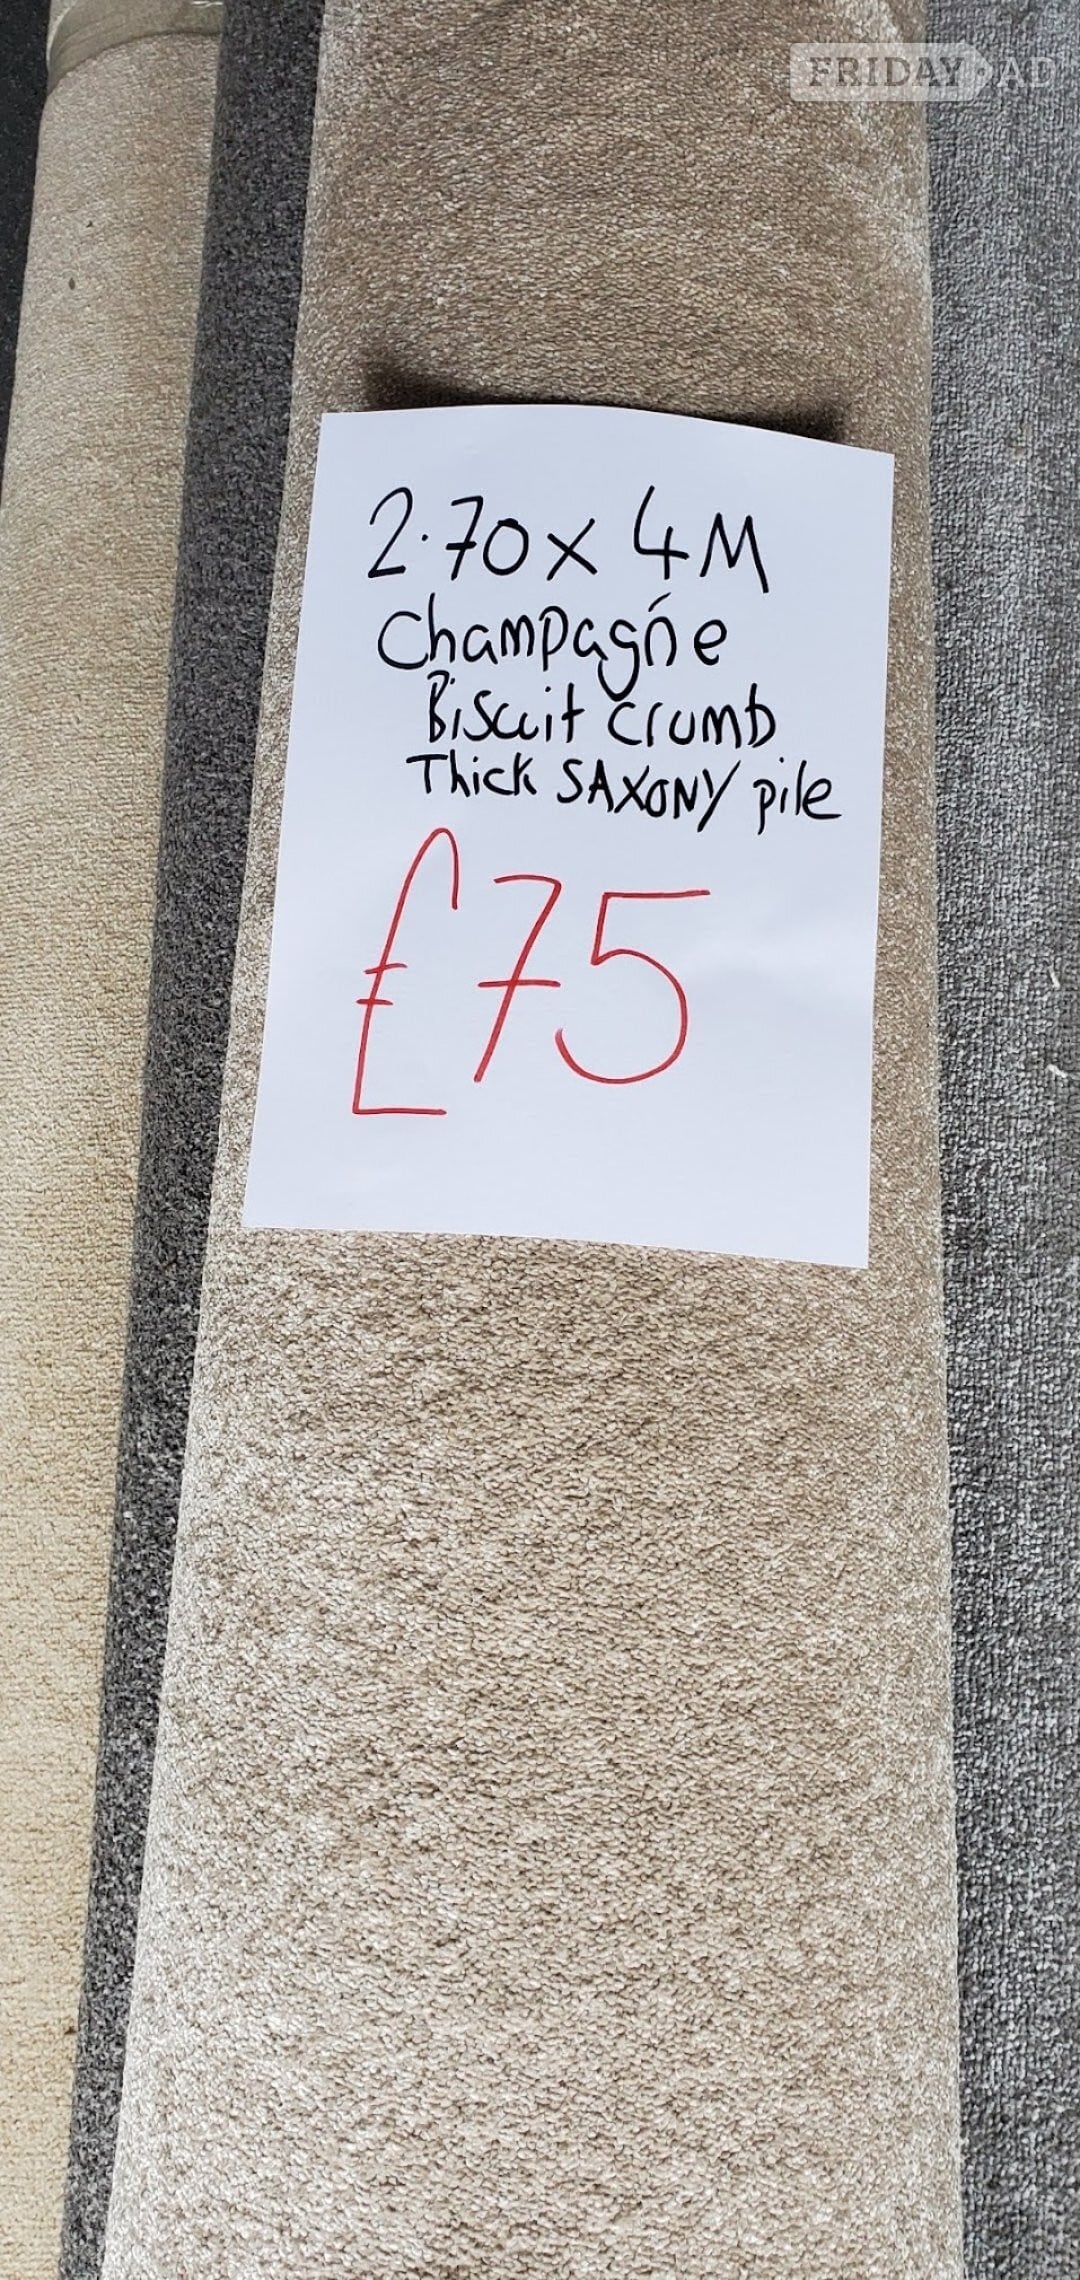 FRIDAY-AD
2.70 x 4M
Champagne
Biscuit crumb
Thick SAXONY pile
£75